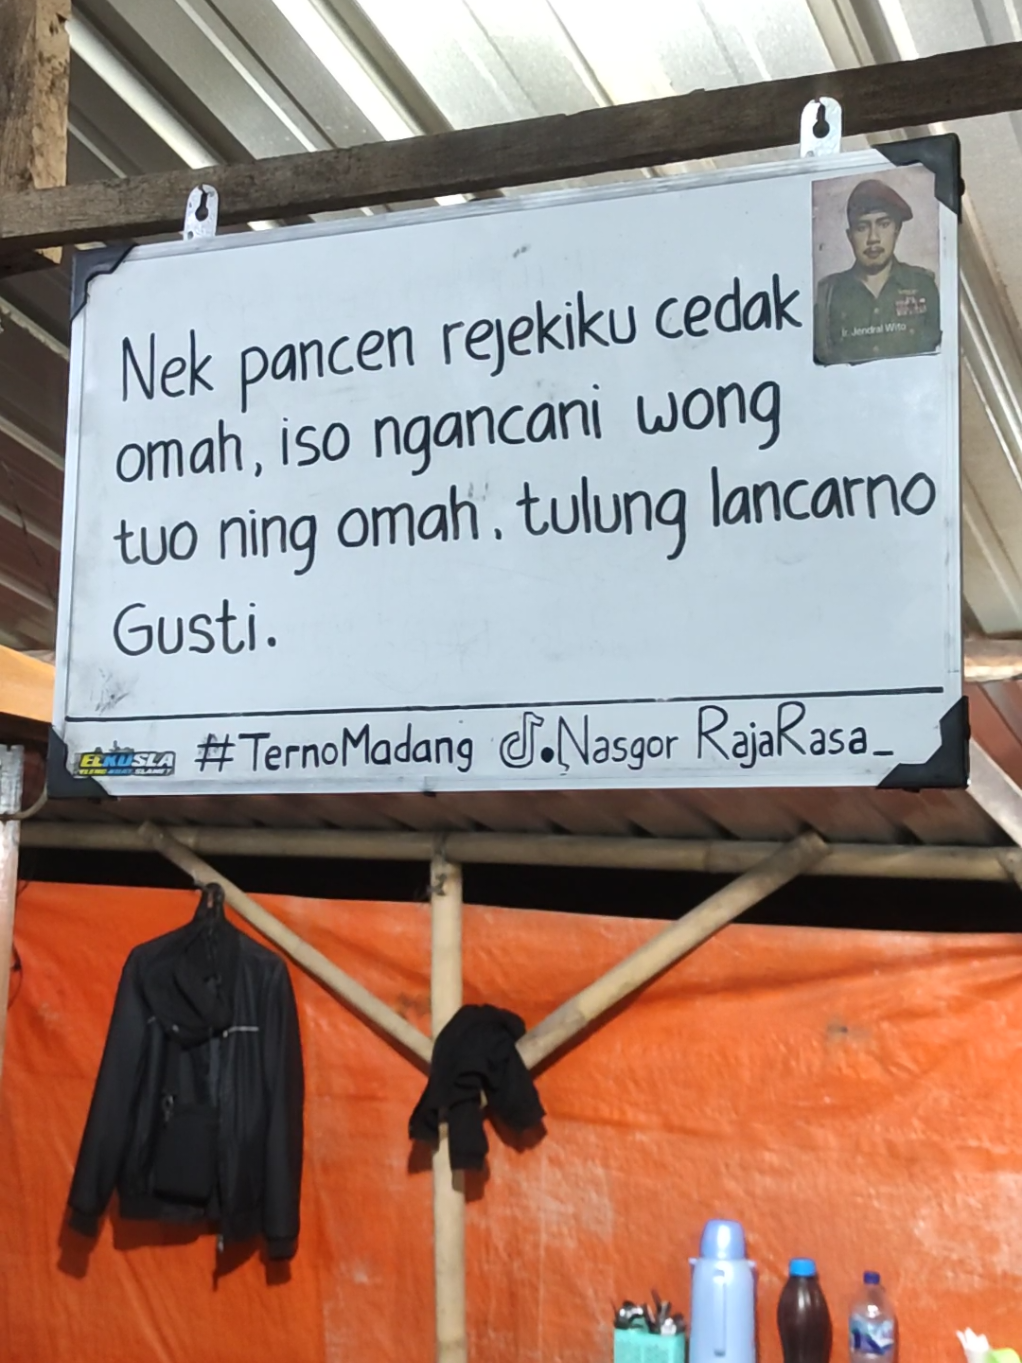 Nek pancen rejekiku cedak
omah, iso ngancani wong
tuo ning omah, tulung lancarno
Gusti.
Jr. Jendral Wito
ELKUSLA
#TernoMadang Nasgor RajaRasa_